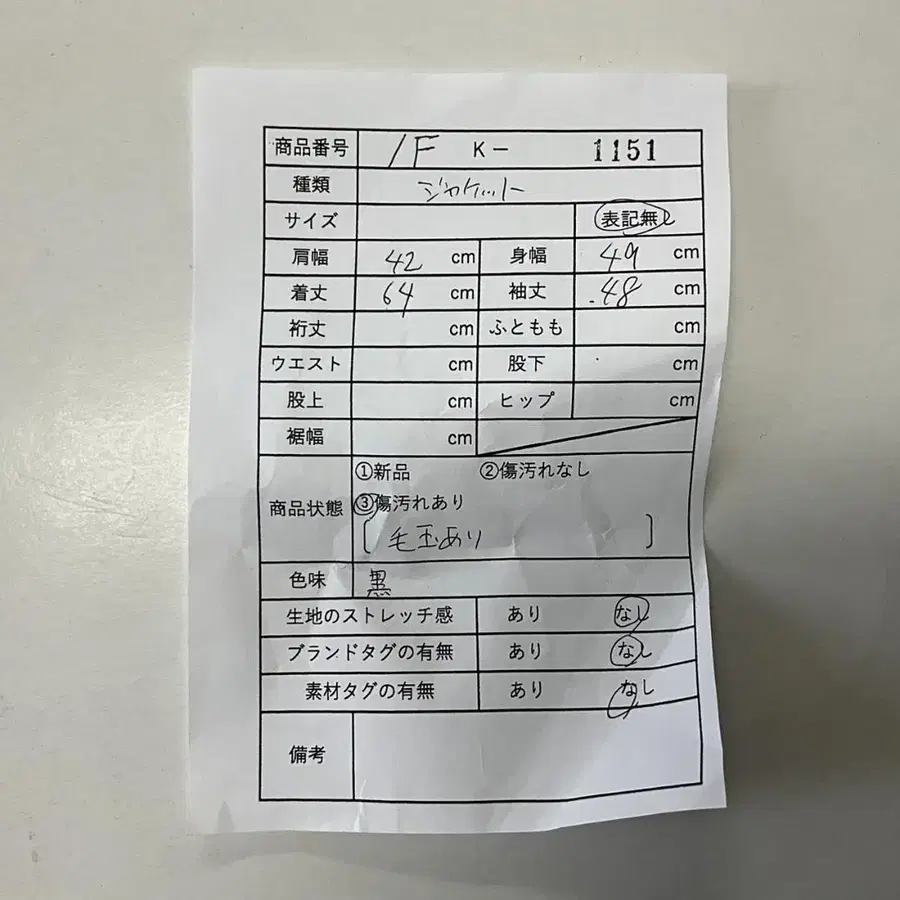 商品番号 1F K- 1151
種類 ジャケット
サイズ 表記無し
肩幅 42 cm 身幅 49 cm
着丈 64 cm 袖丈 48 cm
裄丈 cm ふともも cm
ウエスト cm 股下 cm
股上 cm ヒップ cm
裾幅 cm
①新品 ②傷汚れなし
商品状態 ③傷汚れあり
[ 毛玉あり ]
色味 黒
生地のストレッチ感 あり なし
ブランドタグの有無 あり なし
素材タグの有無 あり なし
備考